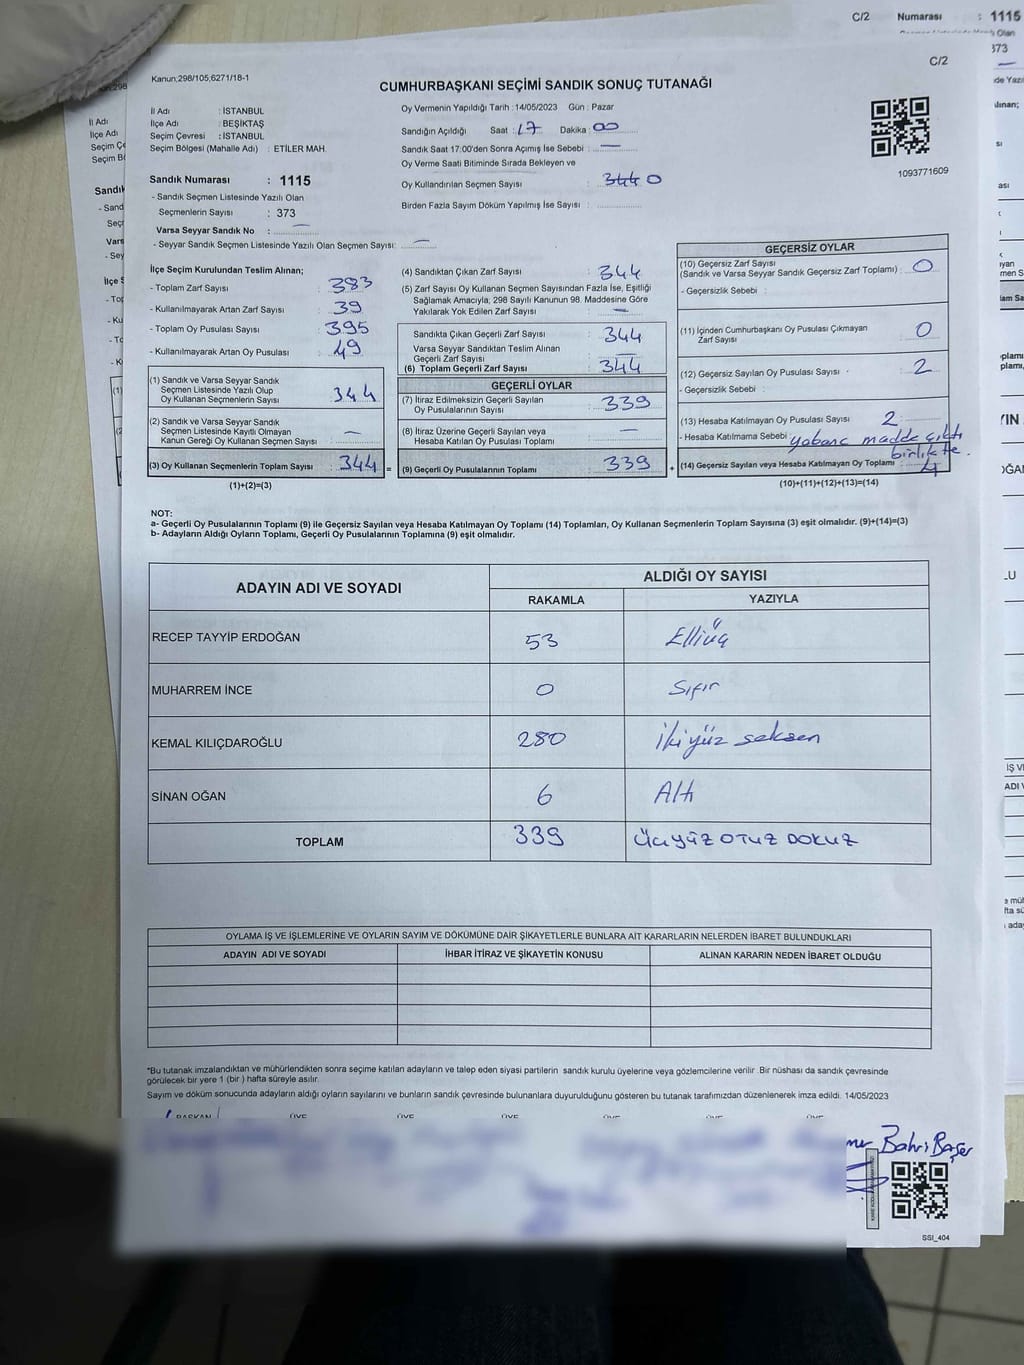 C/2 Numarası : 1115
Kanun;298/105;6271/18-1
C/2
CUMHURBAŞKANI SEÇİMİ SANDIK SONUÇ TUTANAĞI
İl Adı : İSTANBUL
İlçe Adı : BEŞİKTAŞ
Seçim Çevresi : İSTANBUL
Seçim Bölgesi (Mahalle Adı) : ETİLER MAH.
Oy Vermenin Yapıldığı Tarih : 14/05/2023 Gün : Pazar
Sandığın Açıldığı Saat : 17 Dakika : 00
Sandık Saat 17:00'den Sonra Açımış İse Sebebi : —
Oy Verme Saati Bitiminde Sırada Bekleyen ve
Oy Kullandırılan Seçmen Sayısı : 344 0
Birden Fazla Sayım Döküm Yapılmış İse Sayısı :
1093771609
Sandık Numarası : 1115
- Sandık Seçmen Listesinde Yazılı Olan
Seçmenlerin Sayısı : 373
Varsa Seyyar Sandık No : —
- Seyyar Sandık Seçmen Listesinde Yazılı Olan Seçmen Sayısı: —
İlçe Seçim Kurulundan Teslim Alınan;
- Toplam Zarf Sayısı : 383
- Kullanılmayarak Artan Zarf Sayısı : 39
- Toplam Oy Pusulası Sayısı : 395
- Kullanılmayarak Artan Oy Pusulası : 49
(1) Sandık ve Varsa Seyyar Sandık
Seçmen Listesinde Yazılı Olup
Oy Kullanan Seçmenlerin Sayısı : 344
(2) Sandık ve Varsa Seyyar Sandık
Seçmen Listesinde Kaydı Olmayan
Kanun Gereği Oy Kullanan Seçmen Sayısı : —
(3) Oy Kullanan Seçmenlerin Toplam Sayısı : 344 =
(1)+(2)=(3)
(4) Sandıktan Çıkan Zarf Sayısı : 344
(5) Zarf Sayısı Oy Kullanan Seçmen Sayısından Fazla İse, Eşitliği
Sağlamak Amacıyla; 298 Sayılı Kanunun 98. Maddesine Göre
Yakılarak Yok Edilen Zarf Sayısı : —
Sandıkta Çıkan Geçerli Zarf Sayısı : 344
Varsa Seyyar Sandıktan Teslim Alınan
Geçerli Zarf Sayısı : —
(6) Toplam Geçerli Zarf Sayısı : 344
GEÇERLİ OYLAR
(7) İtiraz Edilmeksizin Geçerli Sayılan
Oy Pusulalarının Sayısı : 339
(8) İtiraz Üzerine Geçerli Sayılan veya
Hesaba Katılan Oy Pusulası Toplamı : —
(9) Geçerli Oy Pusulalarının Toplamı : 339 +
GEÇERSİZ OYLAR
(10) Geçersiz Zarf Sayısı
(Sandık ve Varsa Seyyar Sandık Geçersiz Zarf Toplamı) : 0
- Geçersizlik Sebebi :
(11) İçinden Cumhurbaşkanı Oy Pusulası Çıkmayan
Zarf Sayısı : 0
(12) Geçersiz Sayılan Oy Pusulası Sayısı : 2
- Geçersizlik Sebebi :
(13) Hesaba Katılmayan Oy Pusulası Sayısı : 2
- Hesaba Katılmama Sebebi : yabanc madde çıktı
birlikte.
(14) Geçersiz Sayılan veya Hesaba Katılmayan Oy Toplamı : 4
(10)+(11)+(12)+(13)=(14)
NOT:
a- Geçerli Oy Pusulalarının Toplamı (9) ile Geçersiz Sayılan veya Hesaba Katılmayan Oy Toplamı (14) Toplamları, Oy Kullanan Seçmenlerin Toplam Sayısına (3) eşit olmalıdır. (9)+(14)=(3)
b- Adayların Aldığı Oyların Toplamı, Geçerli Oy Pusulalarının Toplamına (9) eşit olmalıdır.
ADAYIN ADI VE SOYADI ALDIĞI OY SAYISI
RAKAMLA YAZIYLA
RECEP TAYYİP ERDOĞAN 53 Elliüç
MUHARREM İNCE 0 Sıfır
KEMAL KILIÇDAROĞLU 280 İkiyüz seksen
SİNAN OĞAN 6 Altı
TOPLAM 339 ÜÇYÜZ OTUZ DOKUZ
OYLAMA İŞ VE İŞLEMLERİNE VE OYLARIN SAYIM VE DÖKÜMÜNE DAİR ŞİKAYETLERLE BUNLARA AİT KARARLARIN NELERDEN İBARET BULUNDUKLARI
ADAYIN ADI VE SOYADI İHBAR İTİRAZ VE ŞİKAYETİN KONUSU ALINAN KARARIN NEDEN İBARET OLDUĞU
*Bu tutanak imzalandıktan ve mühürlendikten sonra seçime katılan adayların ve talep eden siyasi partilerin sandık kurulu üyelerine veya gözlemcilerine verilir .Bir nüshası da sandık çevresinde
görülecek bir yere 1 (bir ) hafta süreyle asılır.
Sayım ve döküm sonucunda adayların aldığı oyların sayılarını ve bunların sandık çevresinde bulunanlara duyurulduğunu gösteren bu tutanak tarafımızdan düzenlenerek imza edildi. 14/05/2023
BAŞKAN ÜYE ÜYE ÜYE ÜYE ÜYE
Bahri Başer
SSI_404